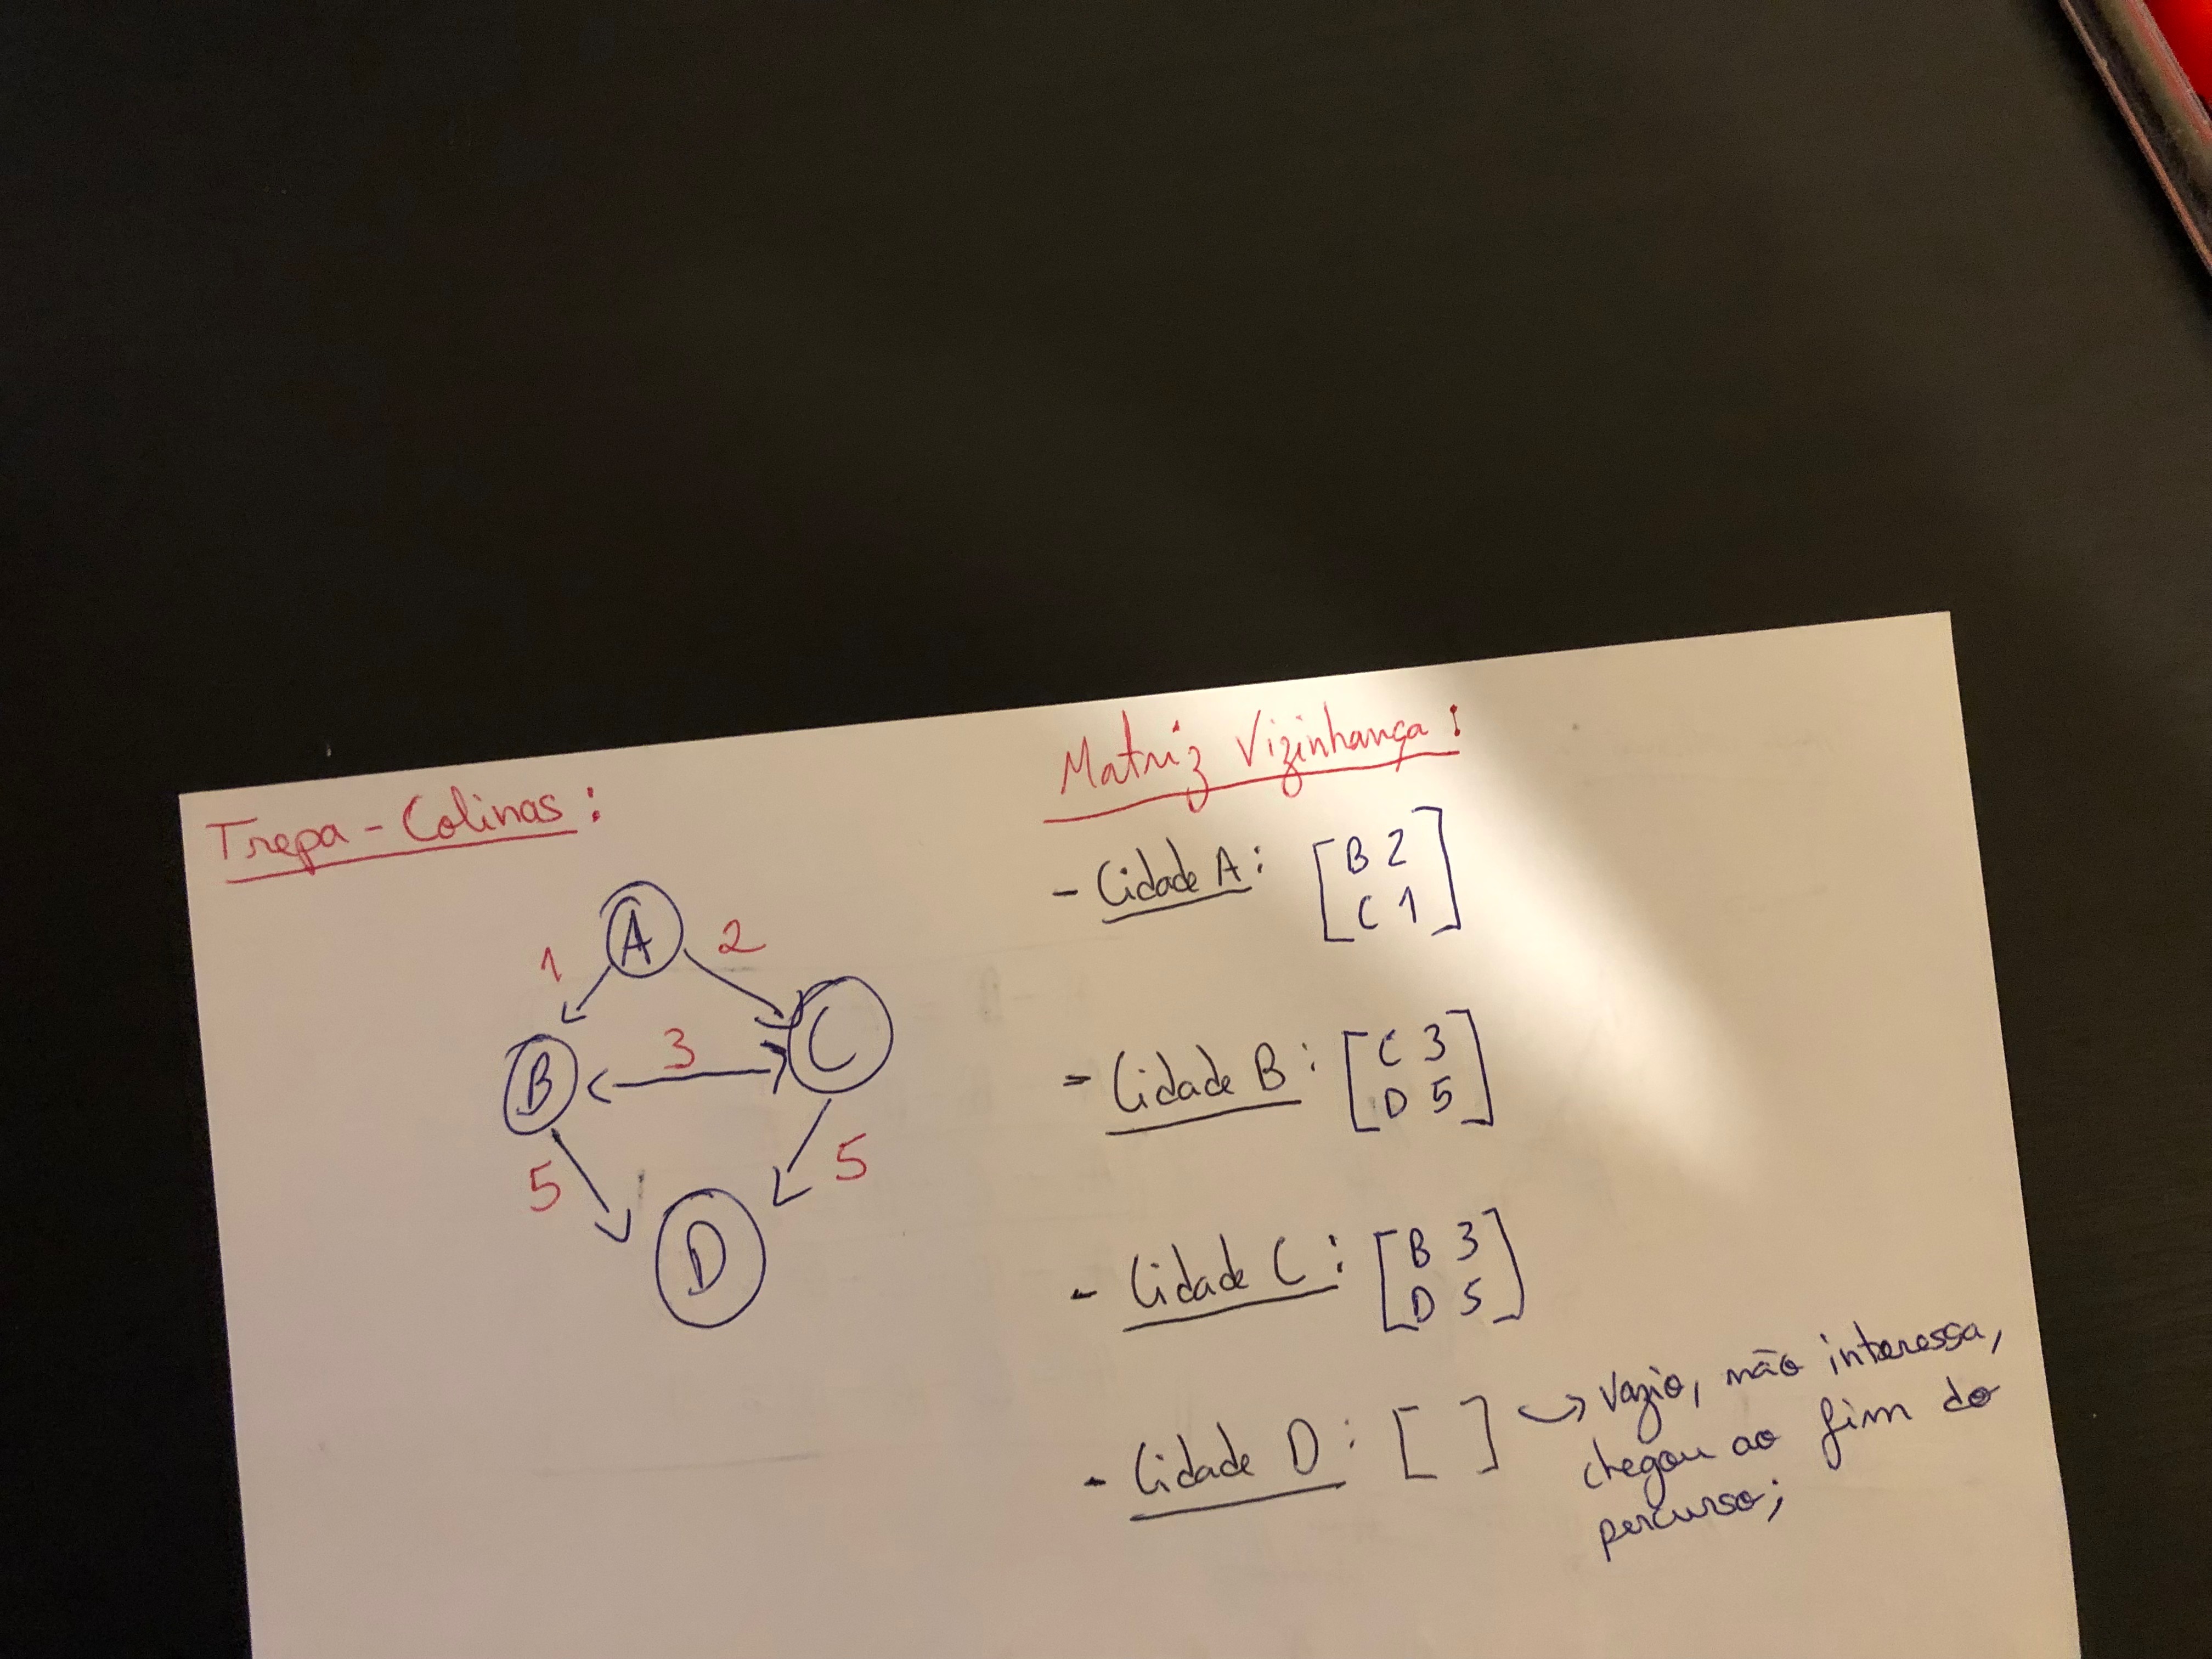 Trepa-Colinas:
A
1
2
B
3
C
5
5
D
Matriz Vizinhança:
- Cidade A: [B 2
C 1]
- Cidade B: [C 3
D 5]
- Cidade C: [B 3
D 5]
- Cidade D: [ ] → vazio, não interessa,
chegou ao fim do
percurso;